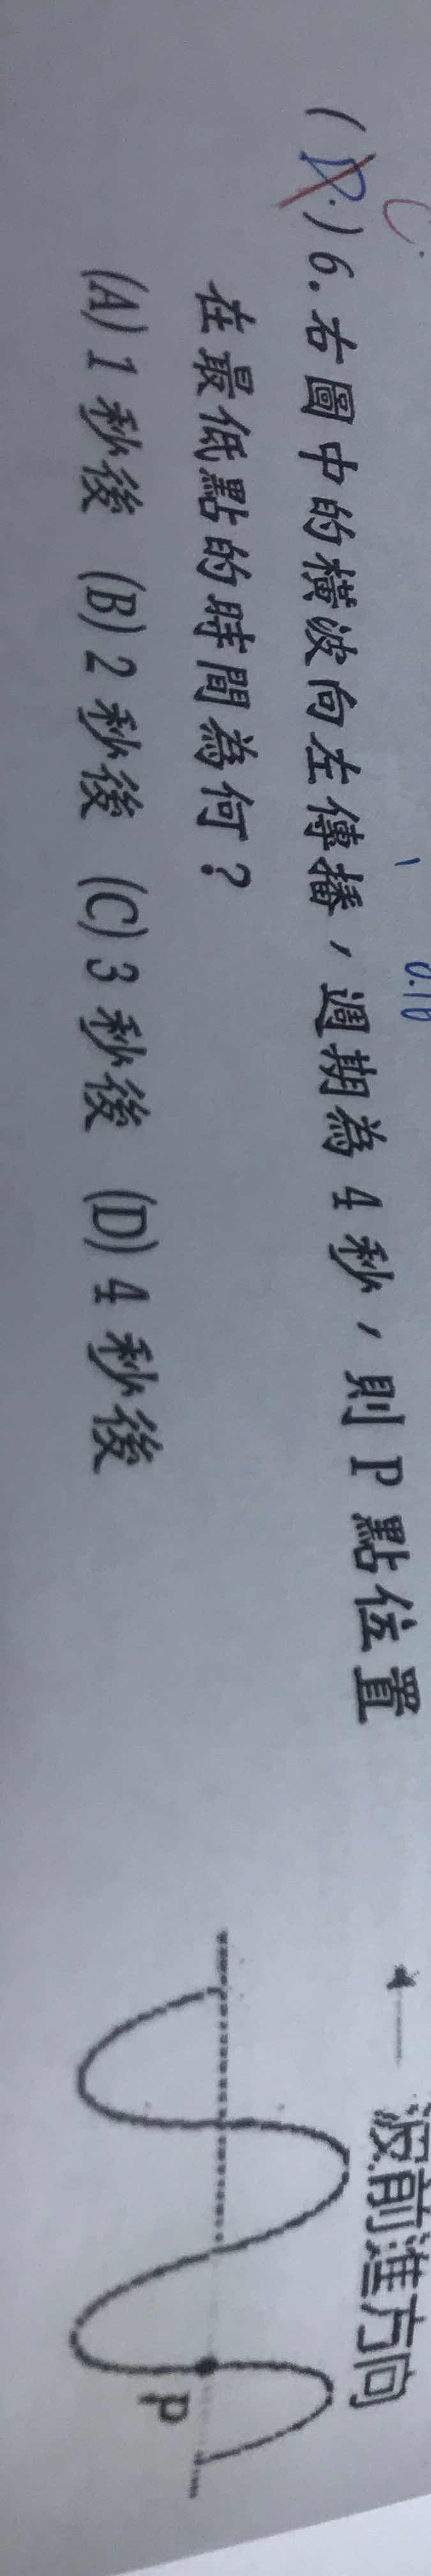 C
(D.)6.右圖中的橫波向左傳播，週期為 4 秒，則 P 點位置
在最低點的時間為何？
(A)1 秒後 (B)2 秒後 (C)3 秒後 (D)4 秒後
波前進方向
P